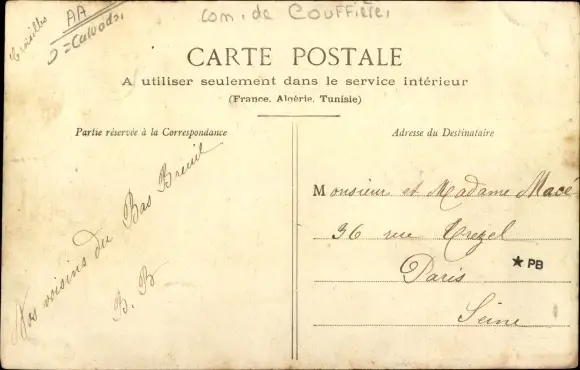 Croisilles
AA
= Calvados
com. de Couffière
CARTE POSTALE
A utiliser seulement dans le service intérieur
(France, Algérie, Tunisie)
Partie réservée à la Correspondance
Nos voisins du Bas Breuil
B. B
Adresse du Destinataire
Monsieur et Madame Macé
36 rue Trezel
Paris
★ PB
Seine